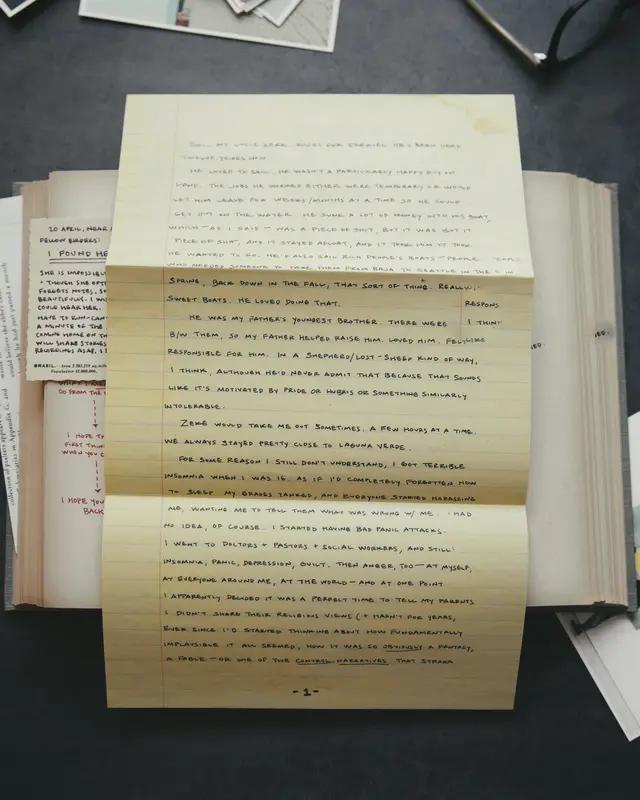 SO... MY UNCLE ZEKE. SHORT FOR EZEKIEL. HE'S BEEN DEAD
TWELVE YEARS NOW.
HE LOVED TO SAIL. HE WASN'T A PARTICULARLY HAPPY GUY ON
LAND. THE JOBS HE WORKED EITHER WERE TEMPORARY OR WOULD
LET HIM LEAVE FOR WEEKS/MONTHS AT A TIME SO HE COULD
GET OUT ON THE WATER. HE SUNK A LOT OF MONEY INTO HIS BOAT,
WHICH — AS I SAID — WAS A PIECE OF SHIT, BUT IT WAS HIS
PIECE OF SHIT, AND IT STAYED AFLOAT, AND IT TOOK HIM
HE WANTED TO GO. HE'D ALSO SAIL RICH PEOPLE'S BOATS — PEOPLE
WHO NEEDED SOMEONE TO TAKE THEM FROM BAJA TO SEATTLE IN THE
SPRING, BACK DOWN IN THE FALL, THAT SORT OF THING. REALLY
SWEET BOATS. HE LOVED DOING THAT.
HE WAS MY FATHER'S YOUNGEST BROTHER. THERE WERE
B/W THEM, SO MY FATHER HELPED RAISE HIM. LOVED HIM. FELT LIKE
RESPONSIBLE FOR HIM. IN A SHEPHERD/LOST-SHEEP KIND OF WAY,
I THINK, ALTHOUGH HE'D NEVER ADMIT THAT BECAUSE THAT SOUNDS
LIKE IT'S MOTIVATED BY PRIDE OR HUBRIS OR SOMETHING SIMILARLY
INTOLERABLE.
ZEKE WOULD TAKE ME OUT SOMETIMES. A FEW HOURS AT A TIME.
WE ALWAYS STAYED PRETTY CLOSE TO LAGUNA VERDE.
FOR SOME REASON I STILL DON'T UNDERSTAND, I GOT TERRIBLE
INSOMNIA WHEN I WAS 16. AS IF I'D COMPLETELY FORGOTTEN HOW
TO SLEEP. MY GRADES TANKED, AND EVERYONE STARTED HARASSING
ME, WANTING ME TO TELL THEM WHAT WAS WRONG W/ ME. I HAD
NO IDEA, OF COURSE. I STARTED HAVING BAD PANIC ATTACKS.
I WENT TO DOCTORS + PASTORS + SOCIAL WORKERS, AND STILL:
INSOMNIA, PANIC, DEPRESSION, GUILT. THEN ANGER, TOO — AT MYSELF,
AT EVERYONE AROUND ME, AT THE WORLD — AND AT ONE POINT
I APPARENTLY DECIDED IT WAS A PERFECT TIME TO TELL MY PARENTS
I DIDN'T SHARE THEIR RELIGIOUS VIEWS (+ HADN'T FOR YEARS,
EVER SINCE I'D STARTED THINKING ABOUT HOW FUNDAMENTALLY
IMPLAUSIBLE IT ALL SEEMED, HOW IT WAS SO OBVIOUSLY A FANTASY,
A FABLE — OR ONE OF THE CONTROL NARRATIVES THAT STRAKA
-1-
RESPONS
I THINK
20 APRIL, NEAR
FELLOW BIRDERS:
I FOUND HE
SHE IS IMPOSSIBL
+ THOUGH SHE OFT
FORGETS NOTES, SO
BEAUTIFUL. I WI
COULD HEAR HER.
HAVE TO RUN - CAN
A MINUTE OF THE
COMING HOME ON TH
WILL SHARE STORIES
REGARDING ASAP, I
BRASIL
GO FROM THE
I HOPE TH
FIRST THIN
WHEN YOU C
I HOPE YOU
BACK